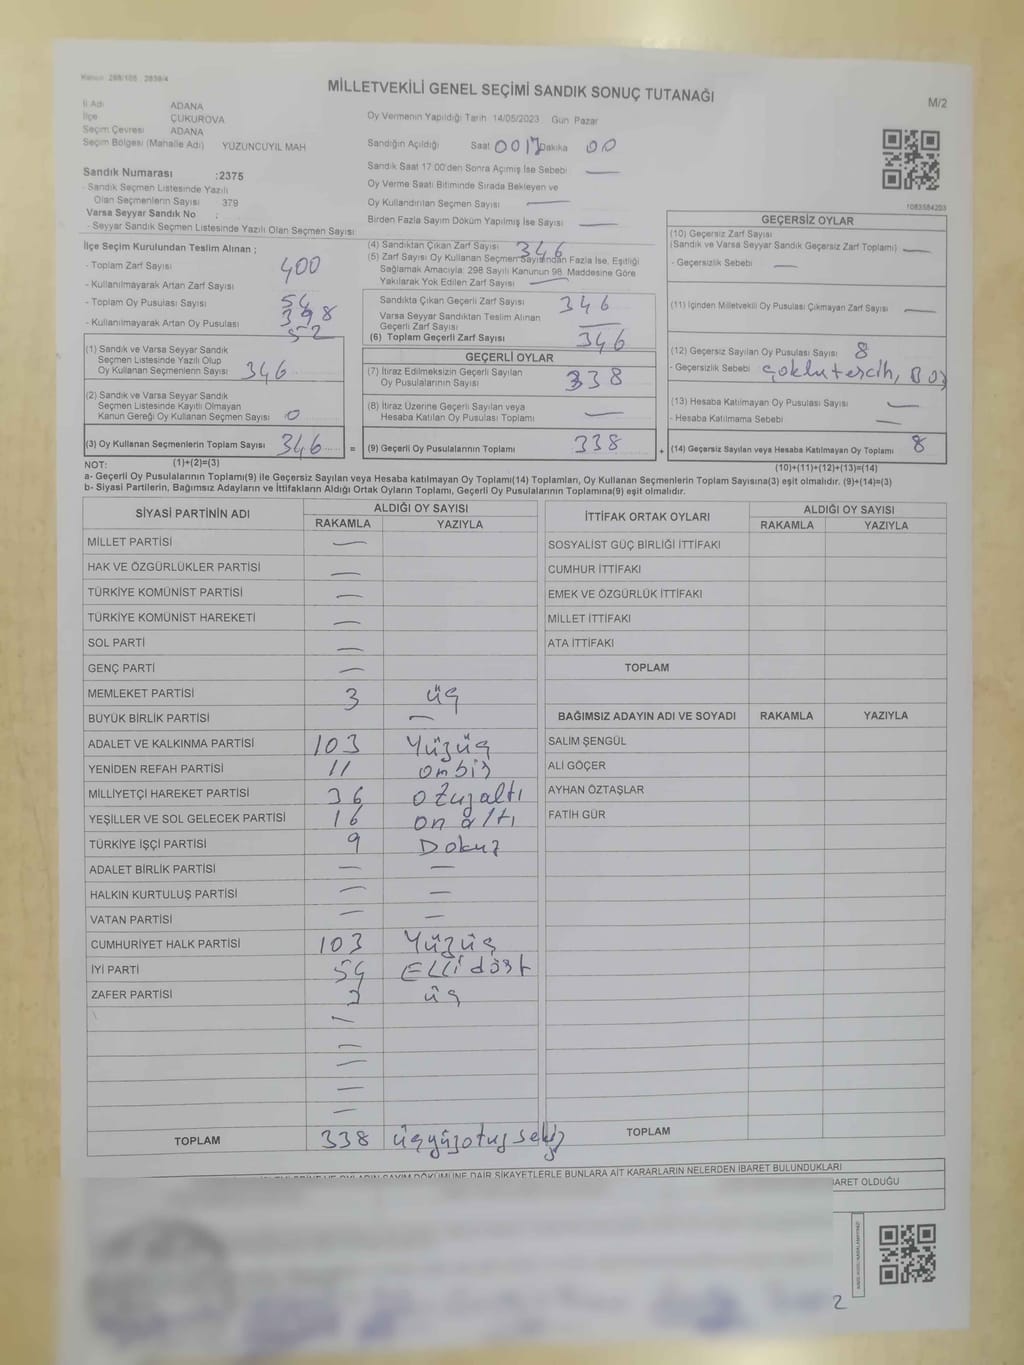 Kanun: 298/105 : 2839/4
MİLLETVEKİLİ GENEL SEÇİMİ SANDIK SONUÇ TUTANAĞI
M/2
İl Adı ADANA
İlçe ÇUKUROVA
Seçim Çevresi ADANA
Seçim Bölgesi (Mahalle Adı) YÜZÜNCÜYIL MAH
Sandık Numarası :2375
- Sandık Seçmen Listesinde Yazılı
Olan Seçmenlerin Sayısı 379
Varsa Seyyar Sandık No :
- Seyyar Sandık Seçmen Listesinde Yazılı Olan Seçmen Sayısı
Oy Vermenin Yapıldığı Tarih 14/05/2023 Gün Pazar
Sandığın Açıldığı Saat 0017 Dakika 00
Sandık Saat 17:00'den Sonra Açılmış İse Sebebi —
Oy Verme Saati Bitiminde Sırada Bekleyen ve
Oy Kullandırılan Seçmen Sayısı —
Birden Fazla Sayım Döküm Yapılmış İse Sayısı —
1083584203
İlçe Seçim Kurulundan Teslim Alınan ;
- Toplam Zarf Sayısı 400
- Kullanılmayarak Artan Zarf Sayısı 54
- Toplam Oy Pusulası Sayısı 398
- Kullanılmayarak Artan Oy Pusulası 52
(1) Sandık ve Varsa Seyyar Sandık
Seçmen Listesinde Yazılı Olup
Oy Kullanan Seçmenlerin Sayısı 346
(2) Sandık ve Varsa Seyyar Sandık
Seçmen Listesinde Kayıtlı Olmayan
Kanun Gereği Oy Kullanan Seçmen Sayısı 0
(3) Oy Kullanan Seçmenlerin Toplam Sayısı 346 =
(1)+(2)=(3)
(4) Sandıktan Çıkan Zarf Sayısı 346
(5) Zarf Sayısı Oy Kullanan Seçmen Sayısından Fazla İse, Eşitliği
Sağlamak Amacıyla; 298 Sayılı Kanunun 98. Maddesine Göre
Yakılarak Yok Edilen Zarf Sayısı —
Sandıkta Çıkan Geçerli Zarf Sayısı 346
Varsa Seyyar Sandıktan Teslim Alınan
Geçerli Zarf Sayısı —
(6) Toplam Geçerli Zarf Sayısı 346
GEÇERLİ OYLAR
(7) İtiraz Edilmeksizin Geçerli Sayılan
Oy Pusulalarının Sayısı 338
(8) İtiraz Üzerine Geçerli Sayılan veya
Hesaba Katılan Oy Pusulası Toplamı —
(9) Geçerli Oy Pusulalarının Toplamı 338 +
GEÇERSİZ OYLAR
(10) Geçersiz Zarf Sayısı
(Sandık ve Varsa Seyyar Sandık Geçersiz Zarf Toplamı) —
- Geçersizlik Sebebi —
(11) İçinden Milletvekili Oy Pusulası Çıkmayan Zarf Sayısı —
(12) Geçersiz Sayılan Oy Pusulası Sayısı 8
- Geçersizlik Sebebi çoklu tercih,
(13) Hesaba Katılmayan Oy Pusulası Sayısı —
- Hesaba Katılmama Sebebi —
(14) Geçersiz Sayılan veya Hesaba Katılmayan Oy Toplamı 8
(10)+(11)+(12)+(13)=(14)
NOT:
a- Geçerli Oy Pusulalarının Toplamı(9) ile Geçersiz Sayılan veya Hesaba katılmayan Oy Toplamı(14) Toplamları, Oy Kullanan Seçmenlerin Toplam Sayısına(3) eşit olmalıdır. (9)+(14)=(3)
b- Siyasi Partilerin, Bağımsız Adayların ve İttifakların Aldığı Ortak Oyların Toplamı, Geçerli Oy Pusulalarının Toplamına(9) eşit olmalıdır.
SİYASİ PARTİNİN ADI ALDIĞI OY SAYISI
RAKAMLA YAZIYLA
MİLLET PARTİSİ —
HAK VE ÖZGÜRLÜKLER PARTİSİ —
TÜRKİYE KOMÜNİST PARTİSİ —
TÜRKİYE KOMÜNİST HAREKETİ —
SOL PARTİ —
GENÇ PARTİ —
MEMLEKET PARTİSİ 3 üç
BÜYÜK BİRLİK PARTİSİ —
ADALET VE KALKINMA PARTİSİ 103 Yüzüç
YENİDEN REFAH PARTİSİ 11 onbir
MİLLİYETÇİ HAREKET PARTİSİ 36 otuzaltı
YEŞİLLER VE SOL GELECEK PARTİSİ 16 on altı
TÜRKİYE İŞÇİ PARTİSİ 9 Dokuz
ADALET BİRLİK PARTİSİ — —
HALKIN KURTULUŞ PARTİSİ — —
VATAN PARTİSİ — —
CUMHURİYET HALK PARTİSİ 103 Yüzüç
İYİ PARTİ 54 Elli dört
ZAFER PARTİSİ 3 üç
—
—
—
—
—
TOPLAM 338 üçyüzotuz sekiz
İTTİFAK ORTAK OYLARI ALDIĞI OY SAYISI
RAKAMLA YAZIYLA
SOSYALİST GÜÇ BİRLİĞİ İTTİFAKI
CUMHUR İTTİFAKI
EMEK VE ÖZGÜRLÜK İTTİFAKI
MİLLET İTTİFAKI
ATA İTTİFAKI
TOPLAM
BAĞIMSIZ ADAYIN ADI VE SOYADI RAKAMLA YAZIYLA
SALİM ŞENGÜL
ALİ GÖÇER
AYHAN ÖZTAŞLAR
FATİH GÜR
TOPLAM
DÖKÜMÜNE DAİR ŞİKAYETLERLE BUNLARA AİT KARARLARIN NELERDEN İBARET BULUNDUKLARI
İBARET OLDUĞU
2